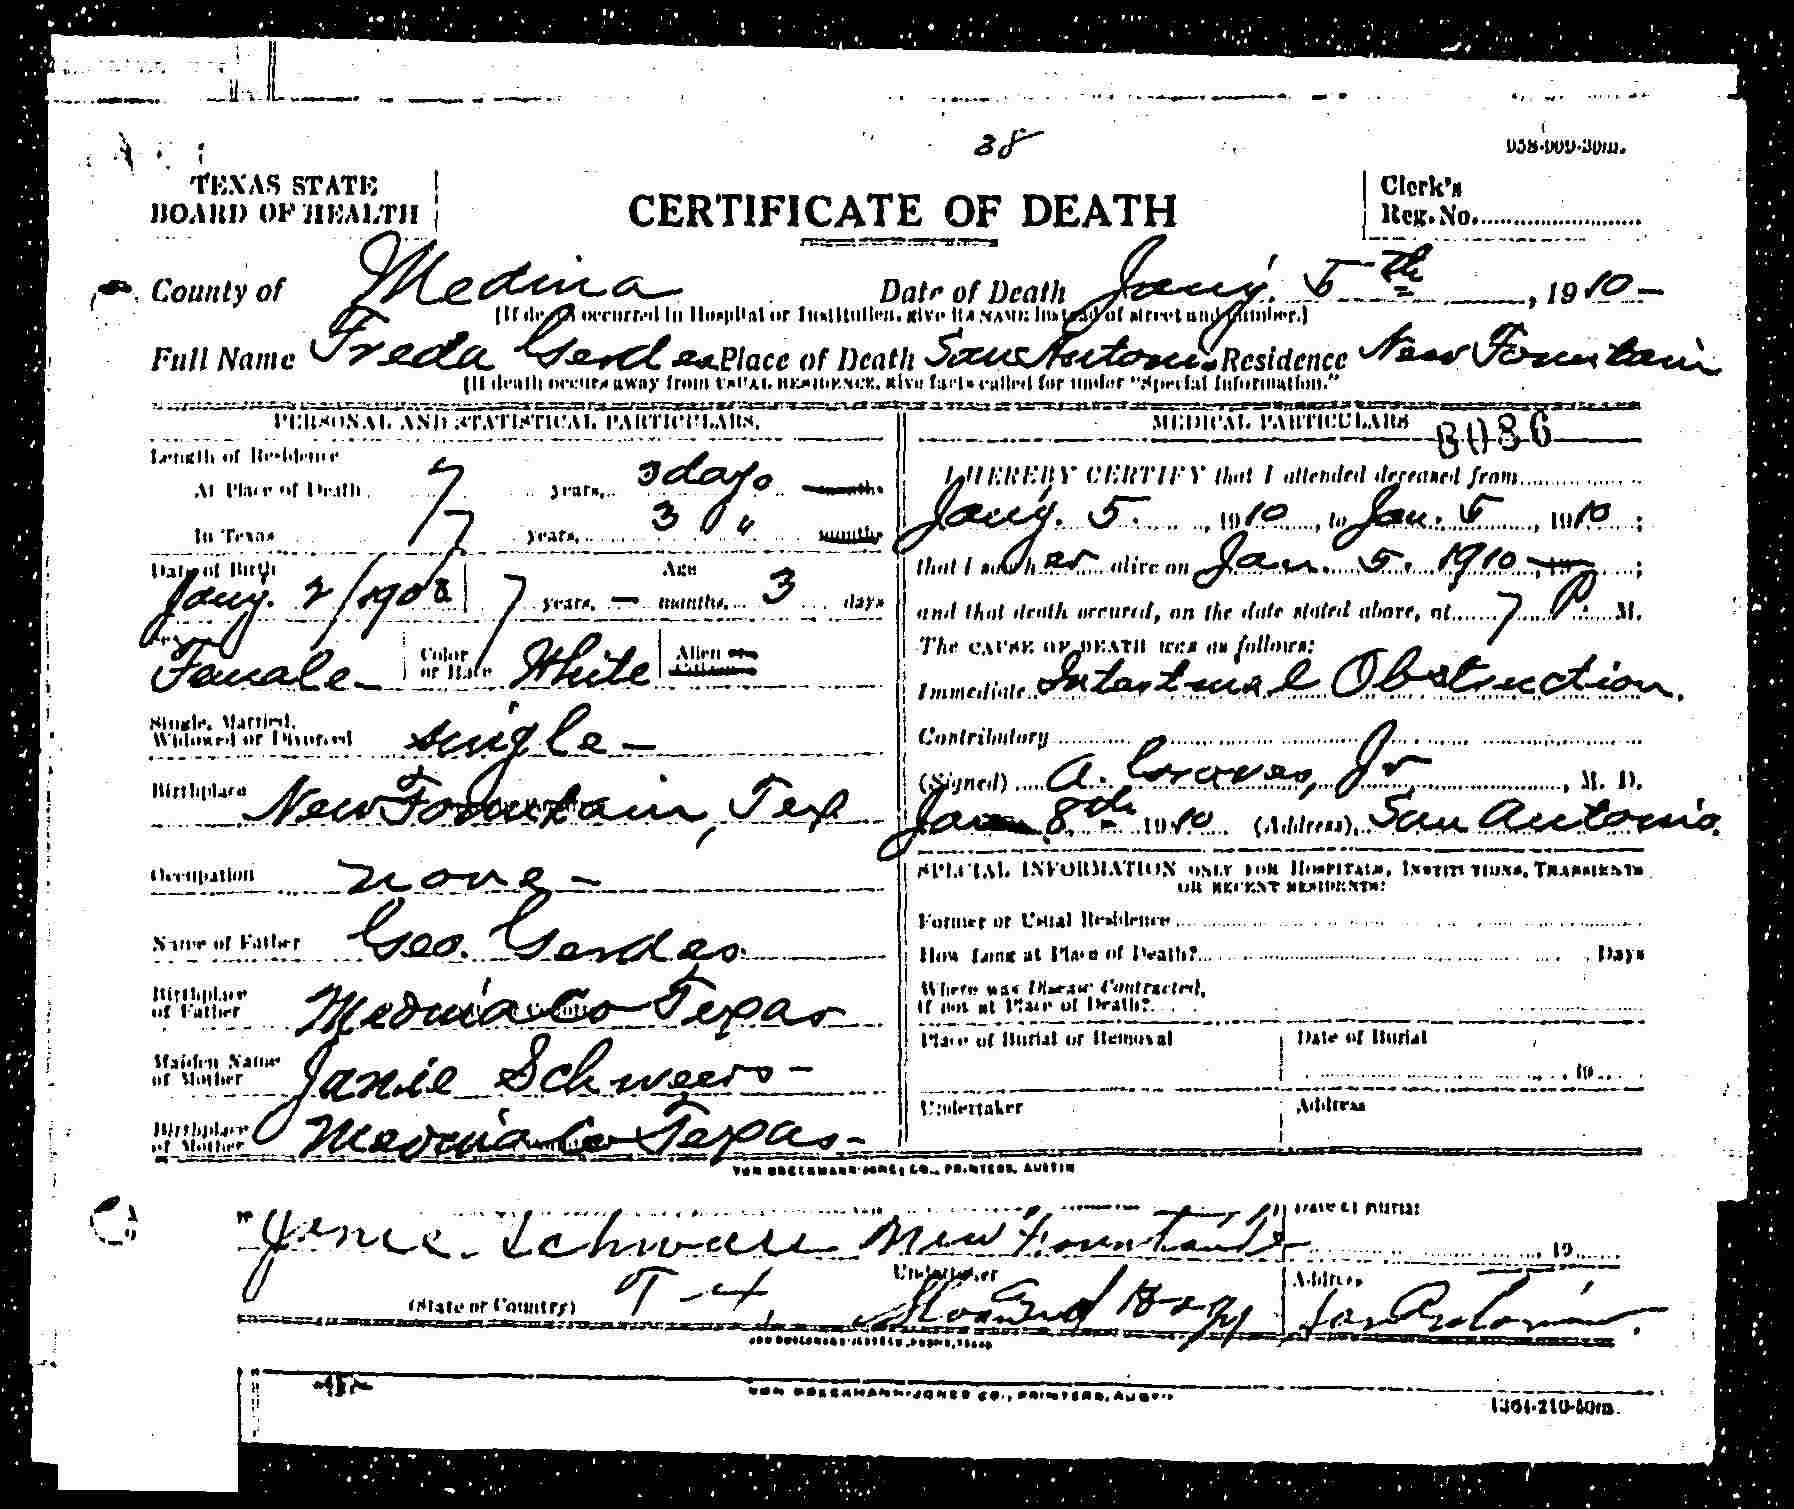 38
958-909-30m.
TEXAS STATE
BOARD OF HEALTH
CERTIFICATE OF DEATH
Clerk's
Reg. No.
County of Medina Date of Death Jany. 5th, 1910-
(If death occurred in Hospital or Institution, give its NAME instead of street and number.)
Full Name Freda Gerdes Place of Death San Antonio Residence New Fountain
(If death occurs away from USUAL RESIDENCE, give facts called for under "Special Information."
PERSONAL AND STATISTICAL PARTICULARS.
Length of Residence
At Place of Death 7 years, 3 days months
In Texas 7 years, 3 " months
Date of Birth
Age
Jany. 2/1903 7 years, — months, 3 days
Female- Color or Race White Alien or Citizen
Single, Married,
Widowed or Divorced single-
Birthplace New Fountain, Tex
Occupation none-
Name of Father Geo. Gerdes
Birthplace
of Father Medina Co Texas
Maiden Name
of Mother Janie Schweers-
Birthplace
of Mother Medina Co Texas-
MEDICAL PARTICULARS 6086
I HEREBY CERTIFY that I attended deceased from
Jany. 5., 1910, to Jan. 5, 1910;
that I saw her alive on Jan. 5. 1910, 19;
and that death occured, on the date stated above, at 7 P. M.
The CAUSE OF DEATH was as follows:
Immediate Intestinal Obstruction.
Contributory
(Signed) A. Graves, Jr, M. D.
Jan 8th 1910 (Address) San Antonio.
SPECIAL INFORMATION ONLY FOR HOSPITALS, INSTITUTIONS, TRANSIENTS
OR RECENT RESIDENTS:
Former or Usual Residence
How Long at Place of Death? Days
Where was Disease Contracted,
if not at Place of Death?
Place of Burial or Removal Date of Burial
, 19
Undertaker Address
VON BOECKMANN-JONES CO., PRINTERS, AUSTIN
Date of Burial
New Fountain
, 19
Undertaker Address
(State or Country) San Antonio.
VON BOECKMANN-JONES CO., PRINTERS, AUSTIN
1364-210-50m.